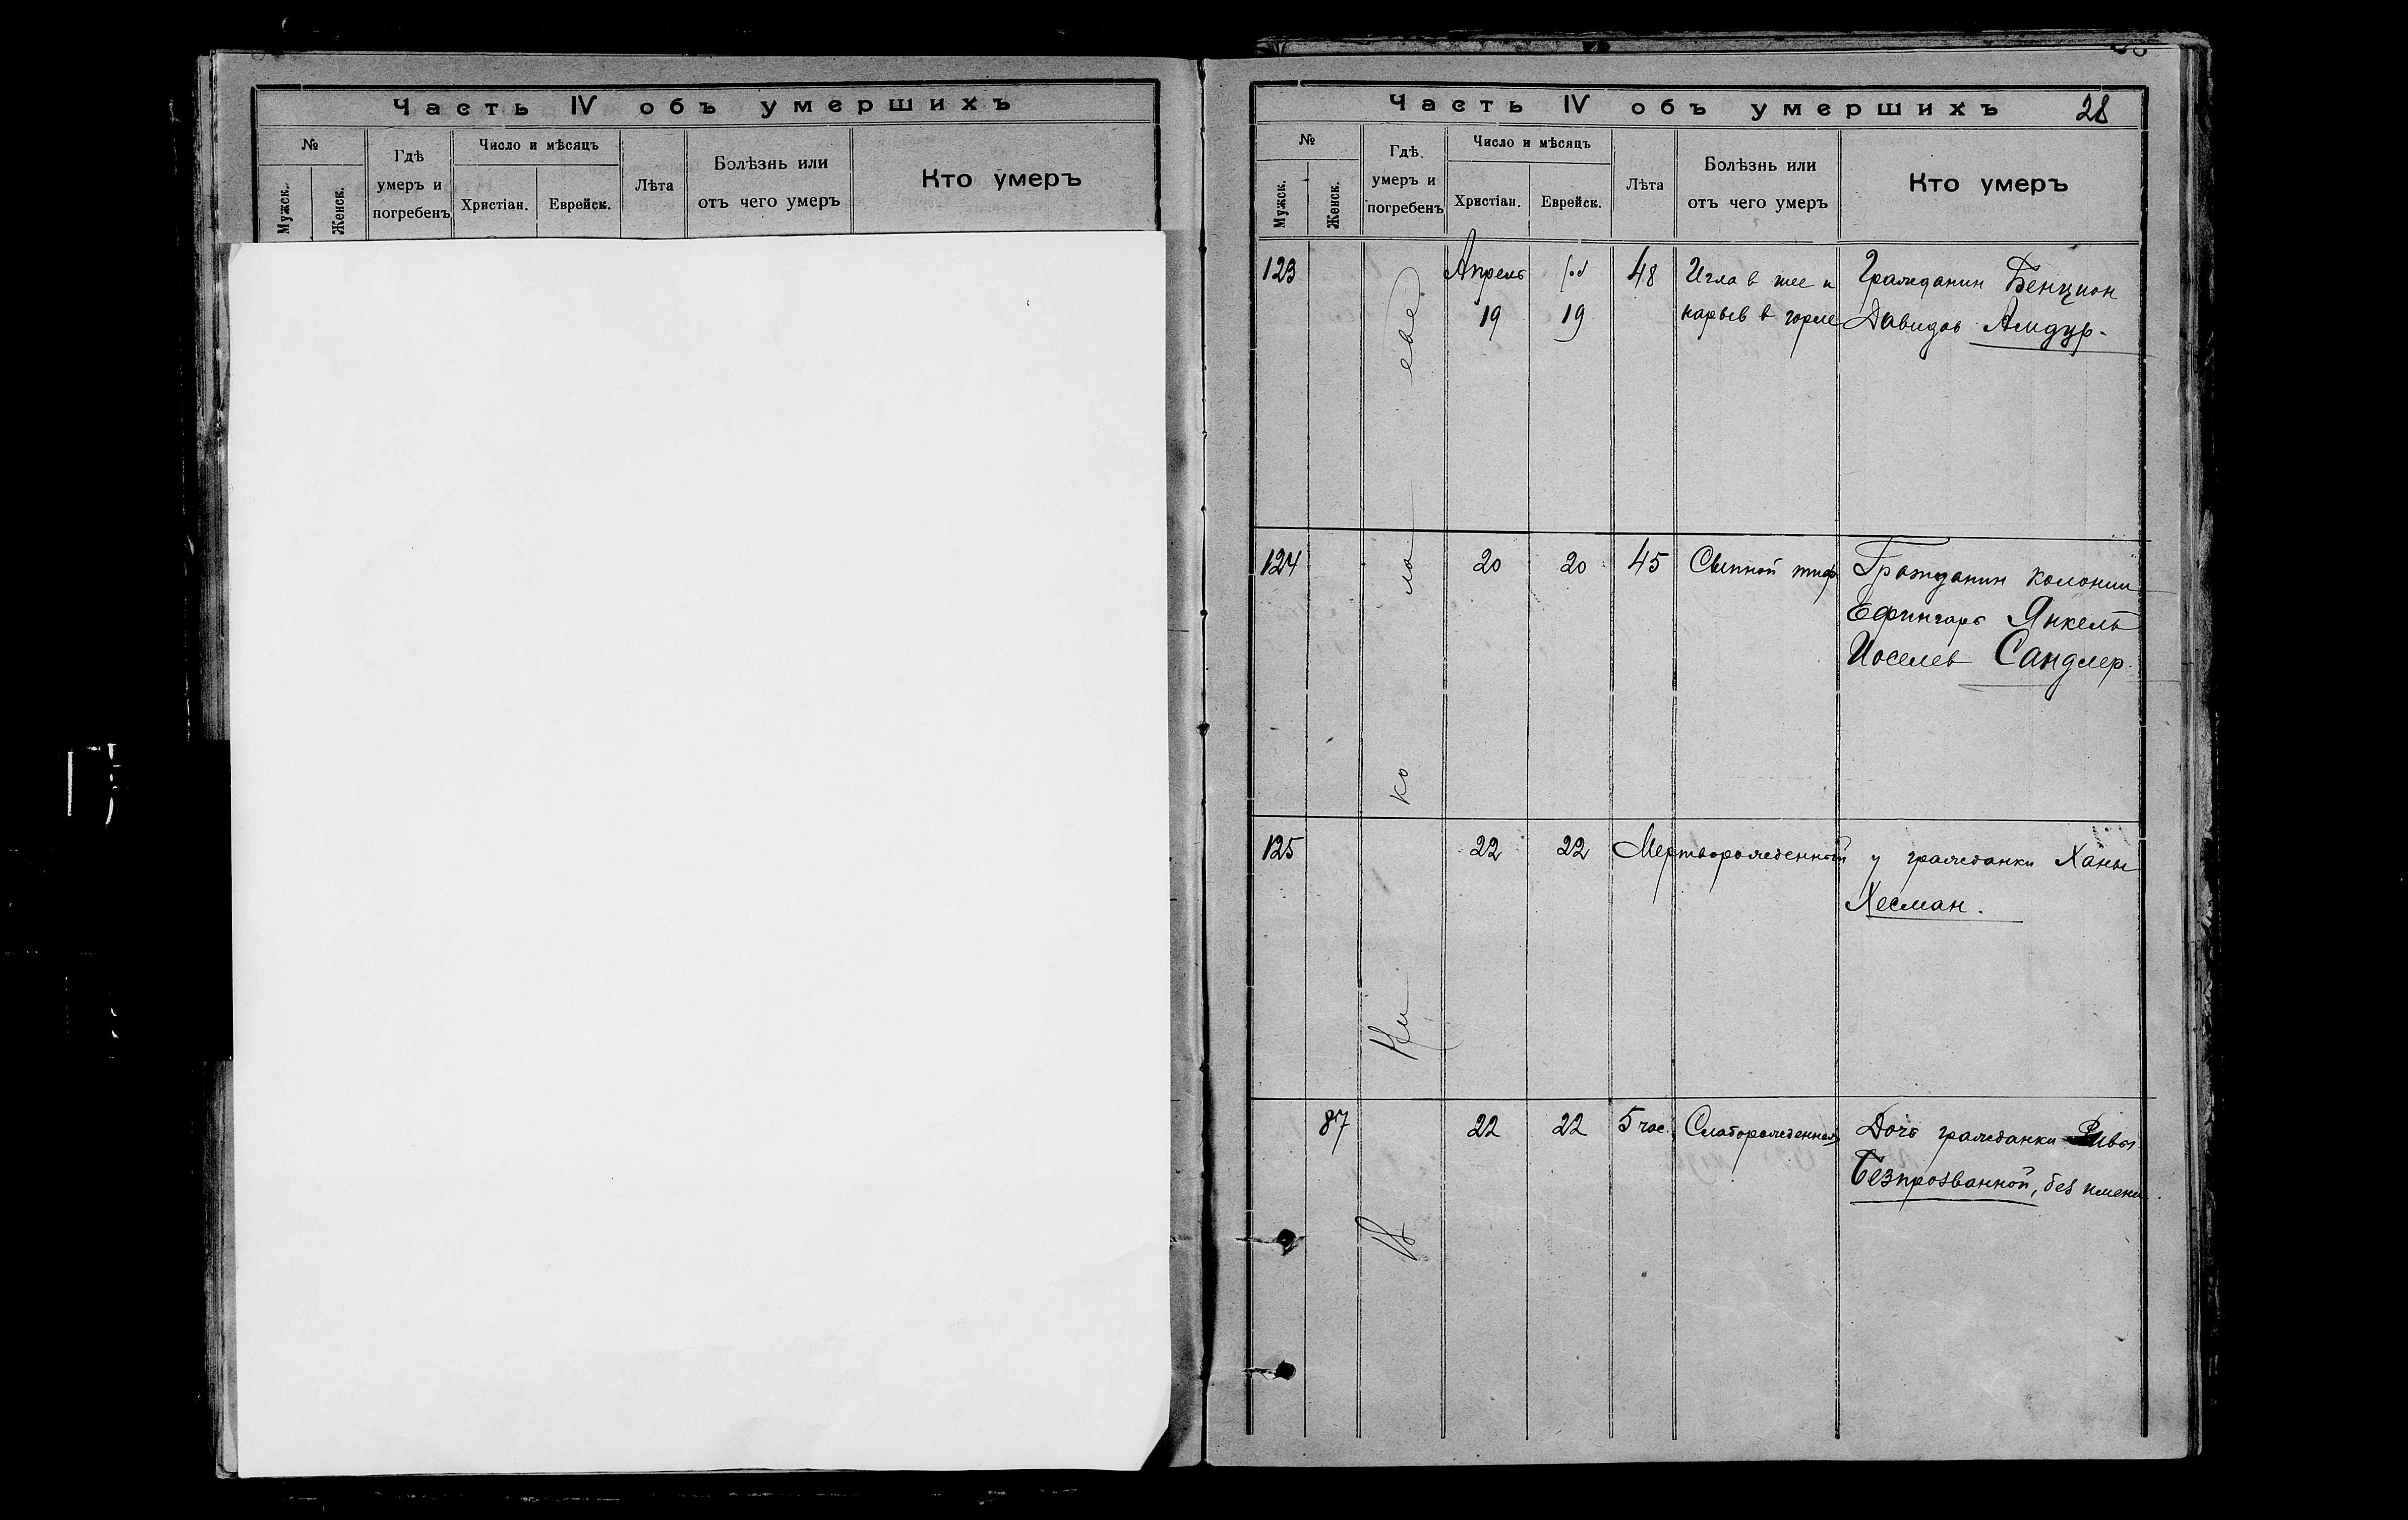 Часть IV объ умершихъ
№
Мужск.
Женск.
Гдѣ
умеръ и
погребенъ
Число и мѣсяцъ
Христіан.
Еврейск.
Лѣта
Болѣзнь или
отъ чего умеръ
Кто умеръ
Часть IV объ умершихъ 28
№
Мужск.
Женск.
Гдѣ
умеръ и
погребенъ
Число и мѣсяцъ
Христіан.
Еврейск.
Лѣта
Болѣзнь или
отъ чего умеръ
Кто умеръ
В Николаеве
123 Апрель 48 Игла в шее и Гражданин Бенцион
19 19 нарыв в горле Давидов Амдур.
124 20 20 45 Сыпной тиф Гражданин колонии
Ефингарь Янкель
Иоселев Сандлер.
125 22 22 Мертворожденный у гражданки Ханы
Хесман.
87 22 22 5 час. Слаборожденная Дочь гражданки Ривы
Безпрозванной, без имени.